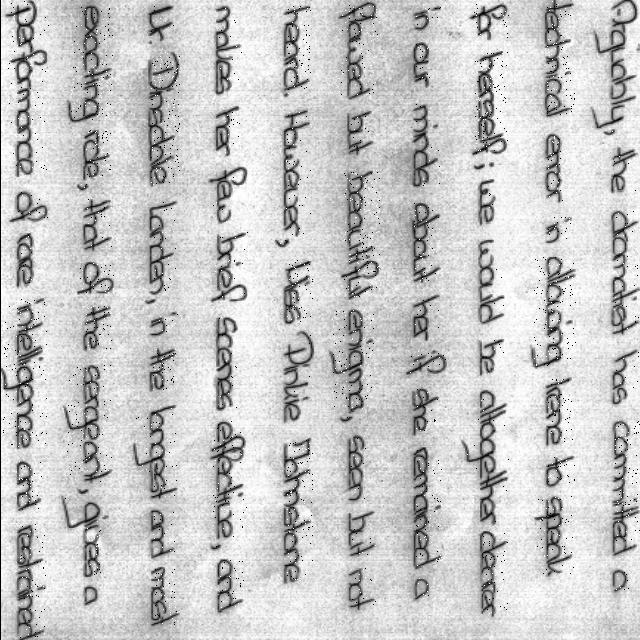 Arguably, the dramatist has committed a
technical error in allowing Irene to speak
for herself; we would be altogether clearer
in our minds about her if she remained a
flawed but beautiful enigma, seen but not
heard. However, Miss Sylvie
makes her few brief scenes effective, and
Mr. Dinsdale Landen, in the longest and most
exacting role, that of the sergeant, gives a
performance of rare intelligence and restraint